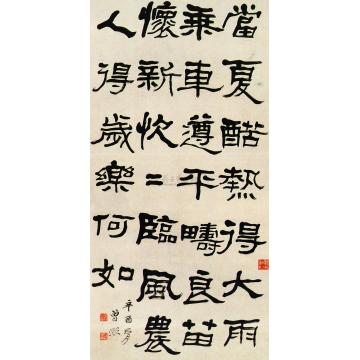 當夏酷熱得大雨
乘車遵平疇良苗
懷新快〻臨風農
人得歲樂何如
辛酉 月
曾熙